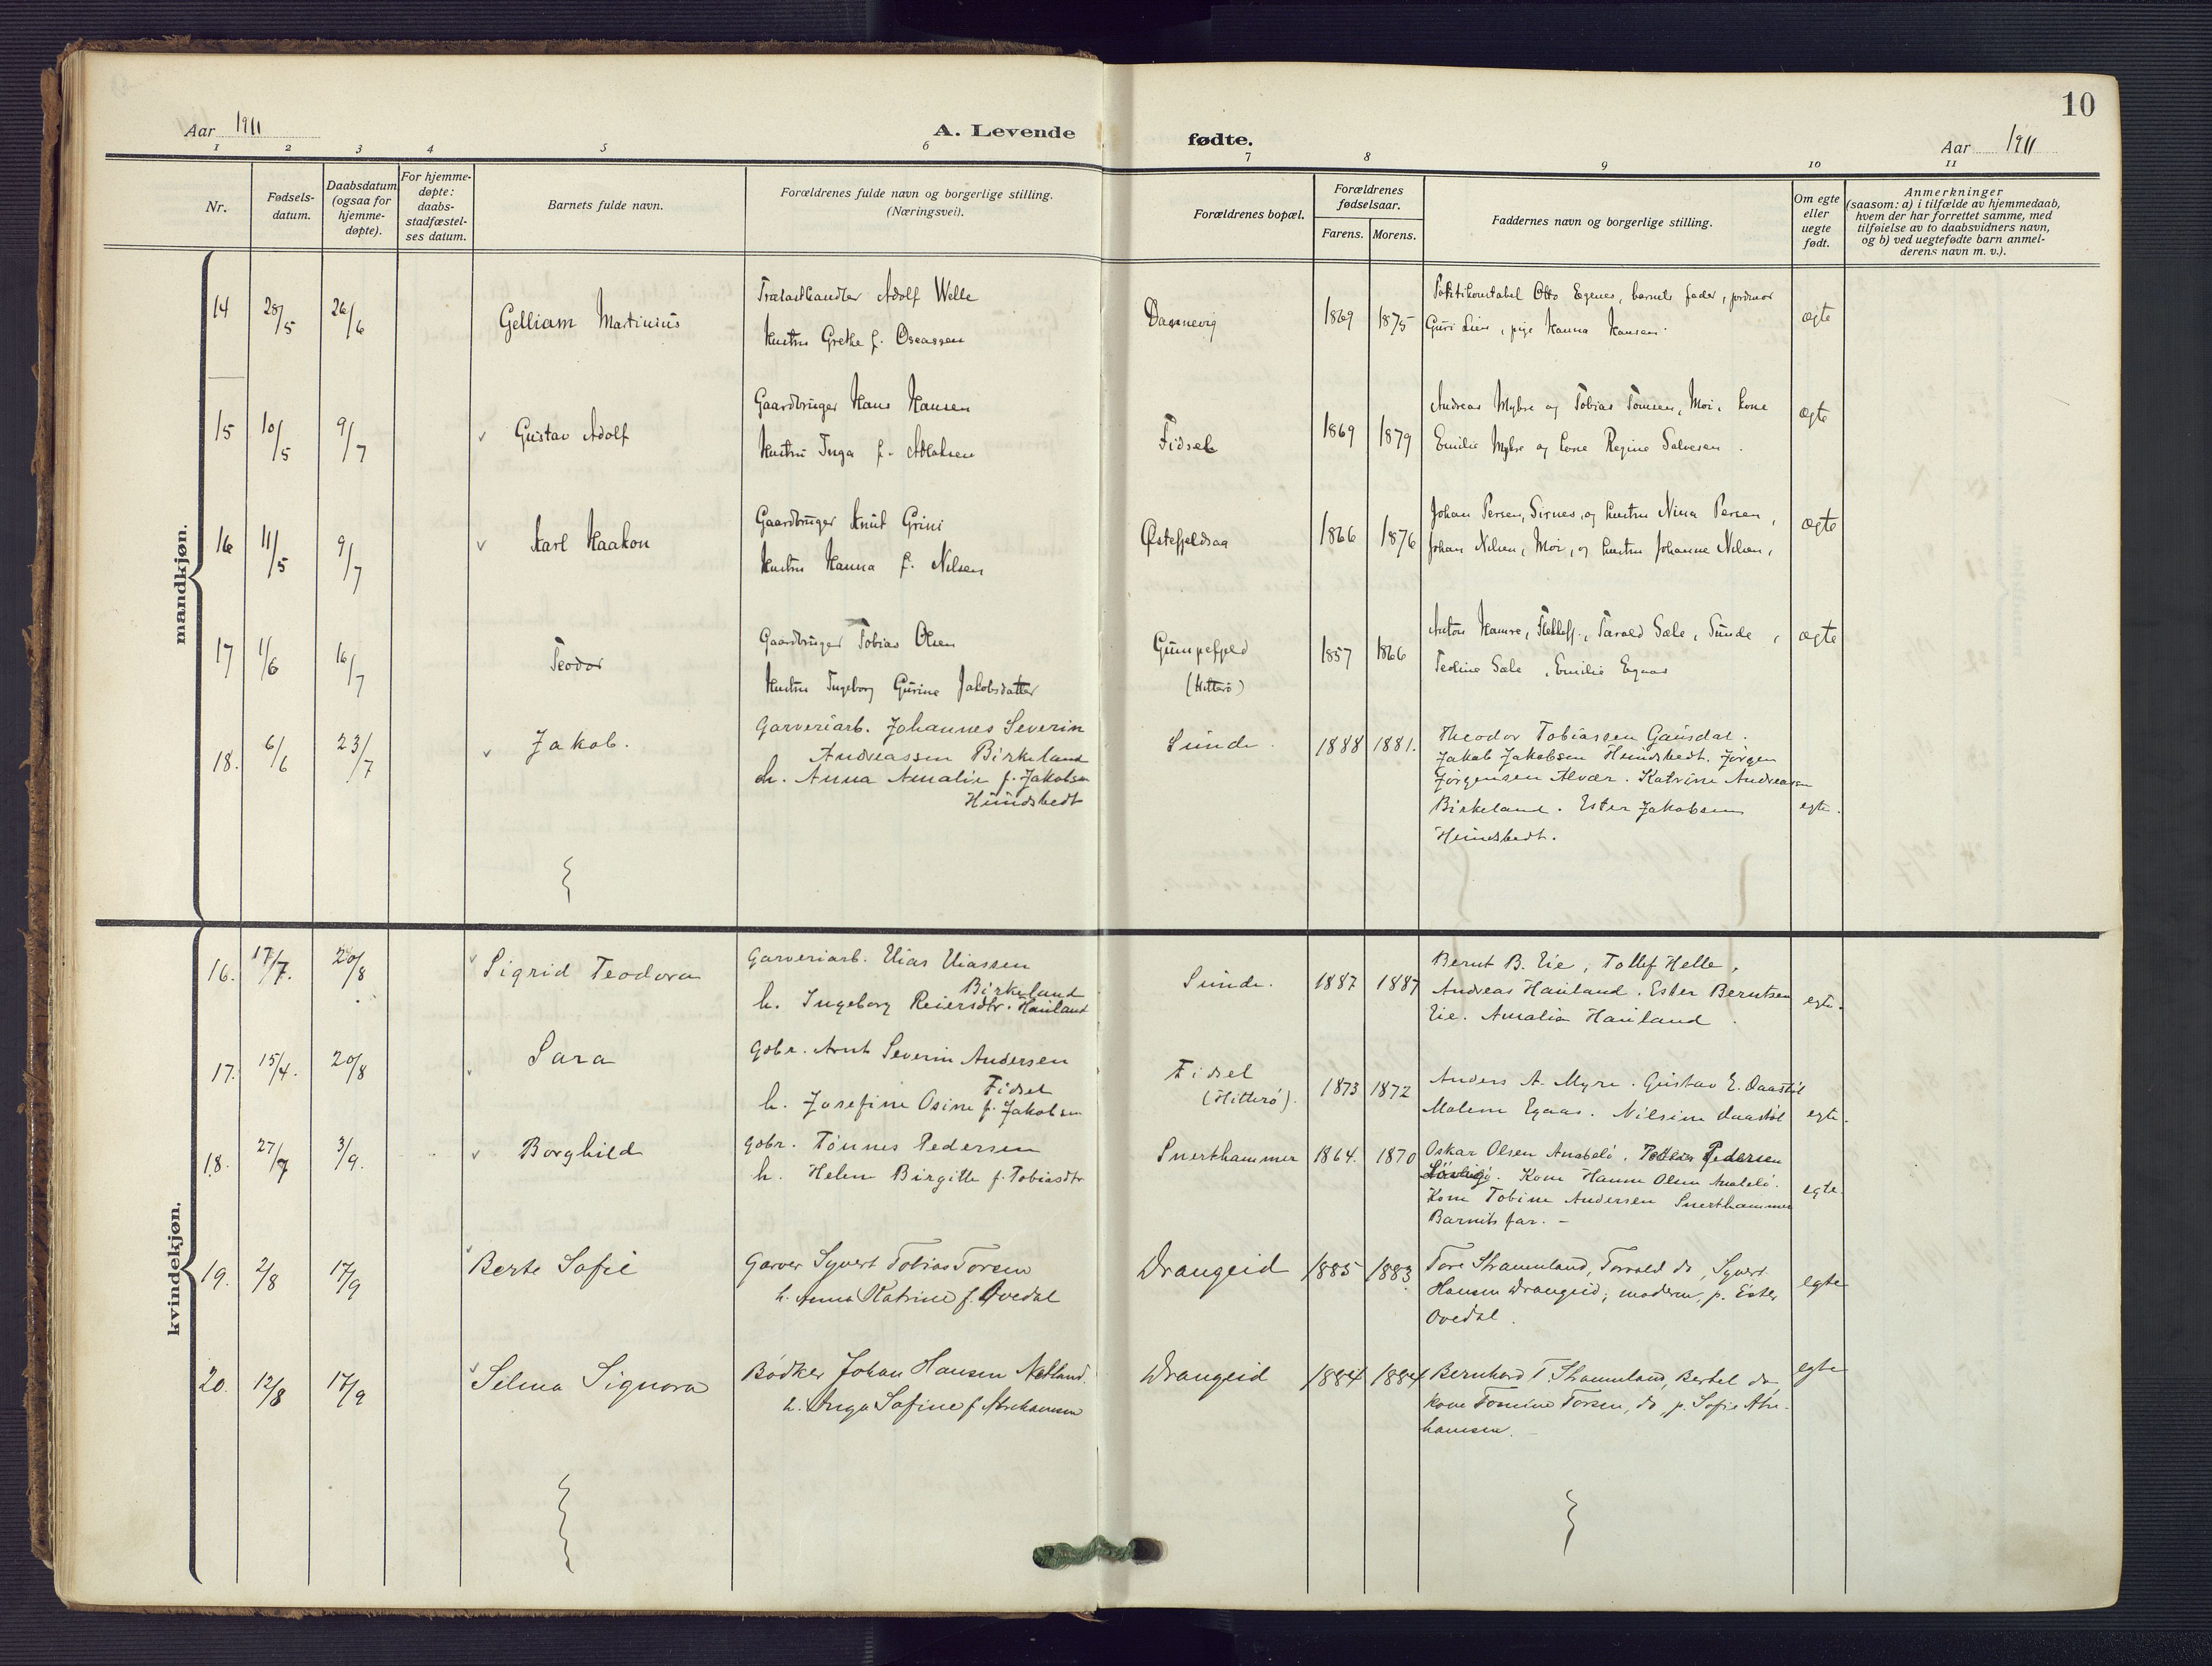 10
Aar 1911 A. Levende fødte. Aar 1911
1 2 3 4 5 6 7 8 9 10 11
Nr.
Fødsels-
datum.
Daabsdatum
(ogsaa for
hjemme-
døpte).
For hjemme-
døpte:
daabs-
stadfæstel-
ses datum.
Barnets fulde navn.
Forældrenes fulde navn og borgerlige stilling.
(Næringsvei).
Forældrenes bopæl.
Forældrenes
fødselsaar.
Farens. Morens.
Faddernes navn og borgerlige stilling.
Om egte
eller
uegte
født.
Anmerkninger
(saasom: a) i tilfælde av hjemmedaab,
hvem der har forrettet samme, med
tilføielse av to daabsvidners navn,
og b) ved uegtefødte barn anmel-
derens navn m. v.).
mandkjøn.
14 28/5 26/6 Gelliam Martinius
Trælasthandler Adolf Welle
Hustru Grethe f. Oseassen
Dannevig
1869 1875
Politikonstabel Otto Egenes, barnets fader, jordmor
Guri Lien, pige Hanna Hansen.
ægte
15 10/5 9/7 Gustav Adolf
Gaardbruger Hans Hansen
Hustru Inga f.
Fidsel
1869 1879
Andreas Myhre og Tobias Tomsen, Moi, kone
Emilie Myhre og kone Regine Salvesen.
ægte
16 11/5 9/7 Karl Haakon
Gaardbruger Knut Grini
Hustru Hanna f. Nilsen
1866 1876
Johan Persen, Sirnes, og hustru Nina Persen,
Johan Nilsen, Moi, og hustru Johanne Nilsen,
ægte
17 1/6 16/7 Teodor
Gaardbruger Tobias Olsen
Hustru Ingeborg Gurine Jakobsdatter
Gumpefjeld
(Hitterø)
1857 1866
Anton Hamre, Tarald Sæle, Sunde,
Tedine Sæle, Emilie Egaas
ægte
18. 6/6 23/7 Jakob.
Garveriarb. Johannes Severin
Andreassen Birkeland
h. Anna Amalie f. Jakobsen
Hundsbedt
Sunde.
1888 1881.
Theodor Tobiassen Gausdal.
Jakob Jakobsen Hundsbedt. Jørgen
Jørgensen Alvær. Katrine Andreassen
Birkeland. Ester Jakobsen
Hundsbedt.
egte.
kvindekjøn.
16. 17/7. 20/8 Sigrid Teodora
Garveriarb. Elias Eliassen
Birkeland
h. Ingeborg Reiersdtr. Hauland
Sunde.
1887 1887
Bernt B. Eie, Tollef Helle,
Andreas Hauland. Ester Berntsen
Eie. Amalia Hauland.
egte.
17. 15/4. 20/8 Sara
Gbr. Arnt Severin Andersen
Fidsel
h. Josefine Osine f. Jakobsen
Fidsel
(Hitterø).
1873 1872
Anders A. Myre. Gustav E. Daastøl
Malene Egaas. Nilsine Daastøl
egte.
18. 27/7 3/9. Borghild
gbr. Tønnes Pedersen
h. Helene Birgitte f. Tobiasdtr
Snerthammer
1864. 1870
Oskar Olsen Anabelø. Pedersen
Kone Hanne Olsen Anabelø.
Kone Tobine Andersen Snerthammer
Barnets far. –
egte.
19. 2/8 17/9 Berte Sofie
Garver Syvert Tobias Torsen
h. Anna Katrine f. Ovedal
Drangeid
1885 1883
Tore Strømland, Torvald do, Syvert
Hansen Drangeid; moderen, p. Ester
Ovedal.
egte
20. 12/8 17/9 Selma Signora
Bødker Johan Hansen Netland.
h. Inga Sofine f. Abrahamsen
Drangeid
1884 1884
Bernhard T. Strømland, Bertel do,
kone Tomine Torsen, do, p. Sofie Abra-
hamsen.
egte